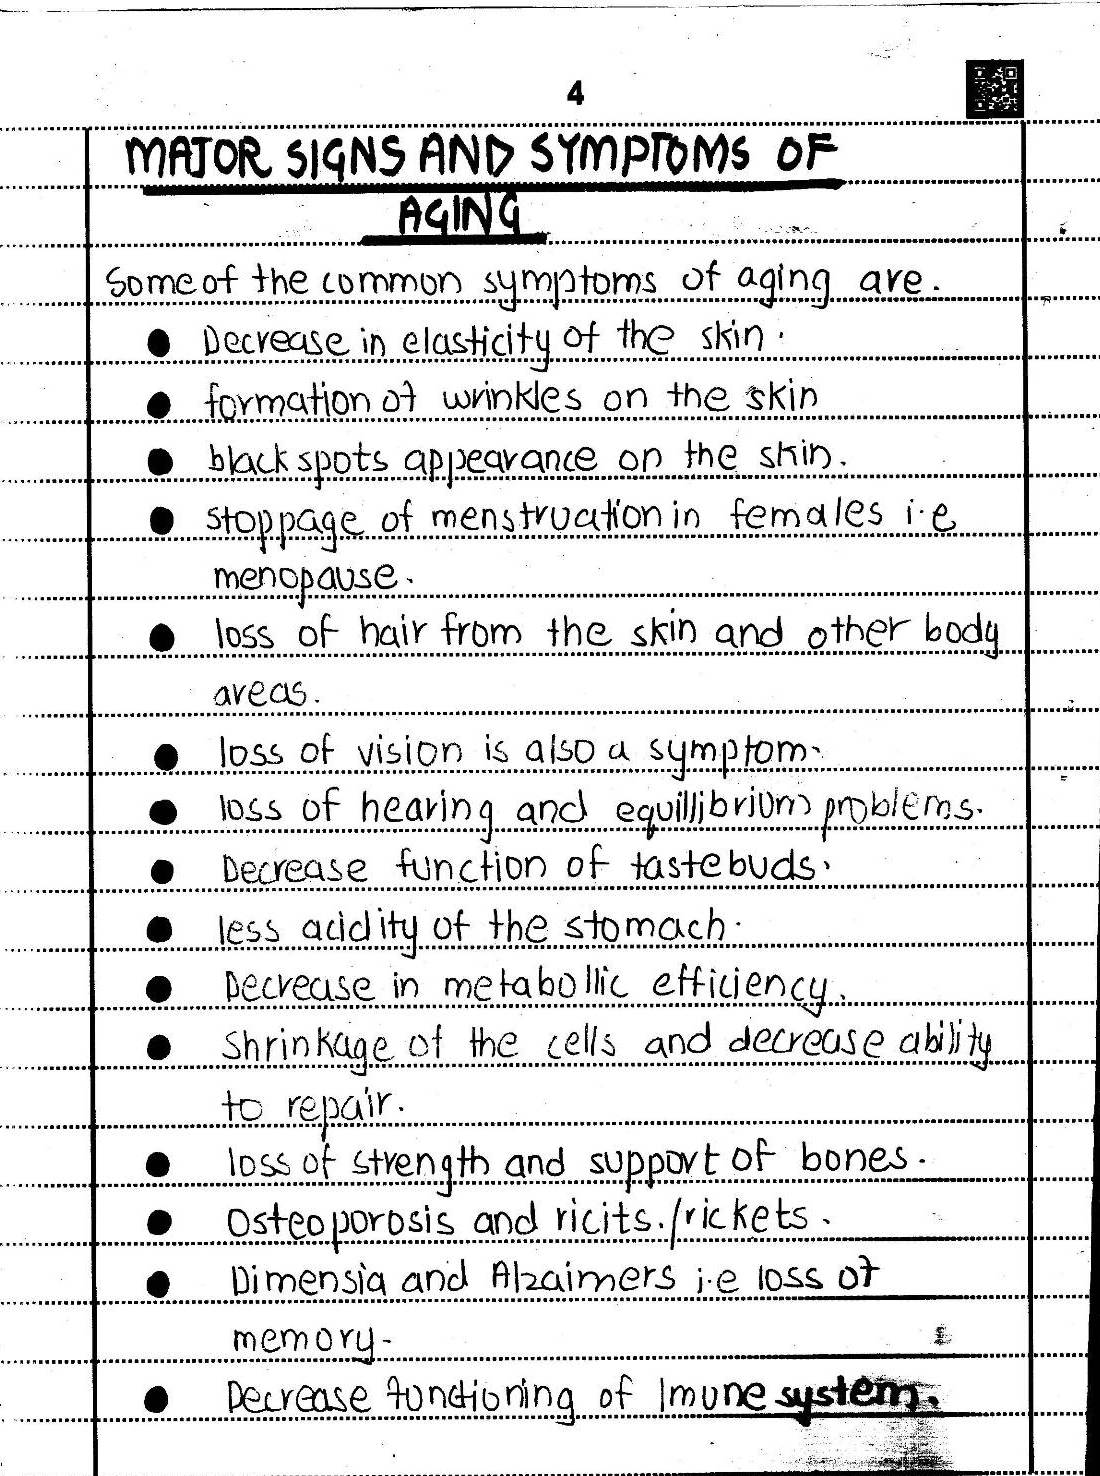 4
MAJOR SIGNS AND SYMPTOMS OF
AGING
Some of the common symptoms of aging are.
● Decrease in elasticity of the skin.
● formation of wrinkles on the skin
● black spots appearance on the skin.
● stoppage of menstruation in females i.e
menopause.
● loss of hair from the skin and other body
areas.
● loss of vision is also a symptom.
● loss of hearing and equillibrium problems.
● Decrease function of tastebuds.
● less acidity of the stomach.
● Decrease in metabollic efficiency.
● Shrinkage of the cells and decrease ability
to repair.
● loss of strength and support of bones.
● Osteoporosis and ricits./rickets.
● Dimensia and Alzaimers i.e loss of
memory.
● Decrease functioning of Imune system.